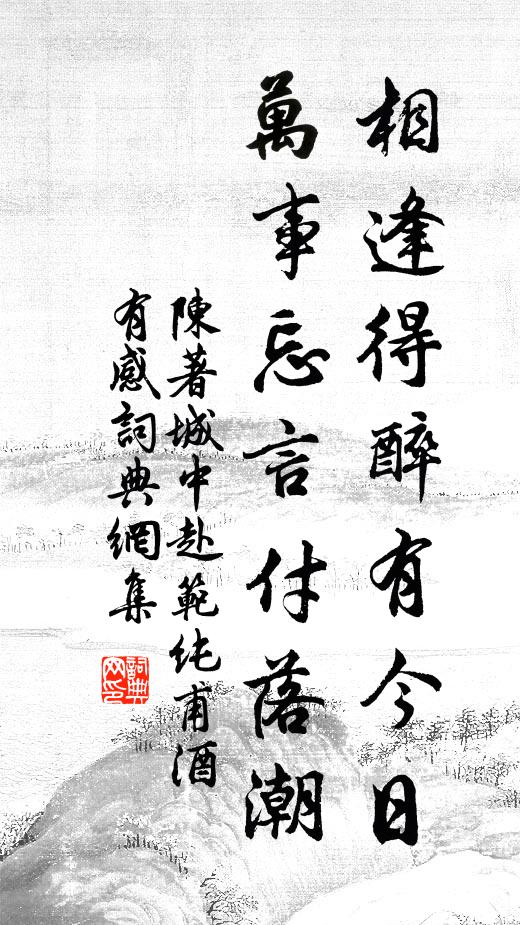 相逢得醉有今日
萬事忘言付落潮
陳著城中赴範純甫酒
有感詞典網集
詞典
网印